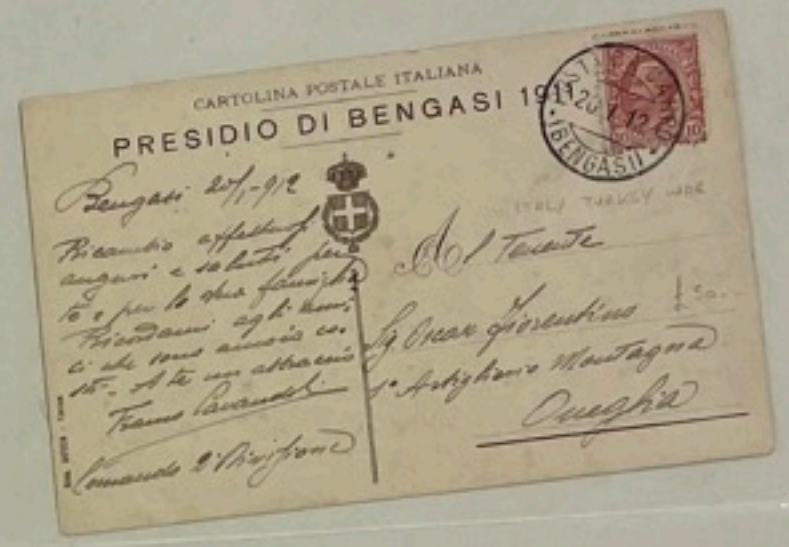 CARTOLINA POSTALE ITALIANA
PRESIDIO DI BENGASI 1911
20.1.12
(BENGASI)
10
Bengasi 20/1-912
Ricambio affettuosi
auguri e saluti per
te e per la tua famiglia
Ricordami agli ami-
ci che sono ancora co-
stì. A te un abbraccio
Comando 2ª Divisione
ITALY TURKEY WAR
Al Tenente
£50.-
Sig. Oscar Fiorentino
1° Artiglieria Montagna
Oneglia